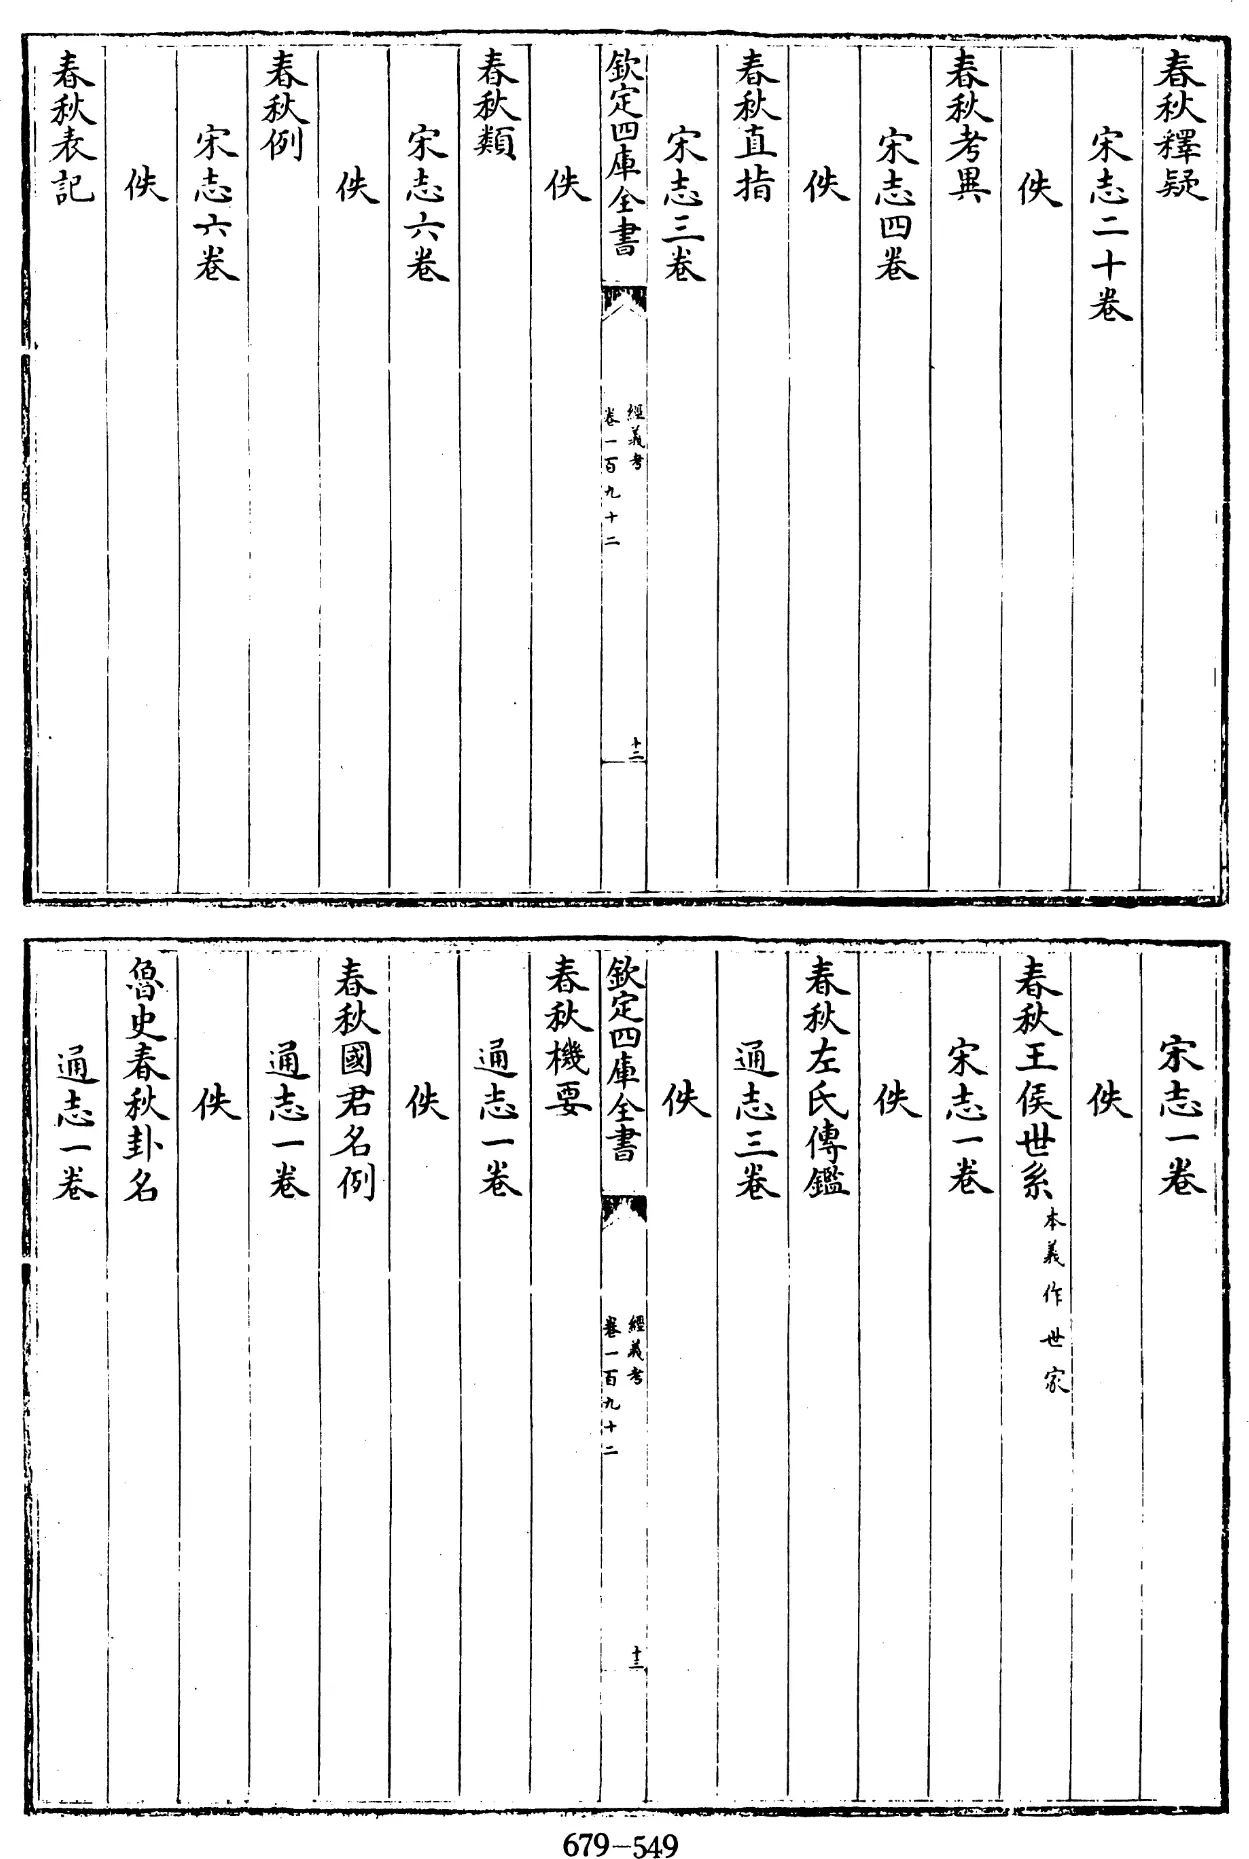 春秋釋疑
宋志二十卷
佚
春秋考異
宋志四卷
佚
春秋直指
宋志三卷
欽定四庫全書
經義考
卷一百九十二
十二
佚
春秋類
宋志六卷
佚
春秋例
宋志六卷
佚
春秋表記
宋志一卷
佚
春秋王侯世系本義作世家
宋志一卷
佚
春秋左氏傳鑑
通志三卷
佚
欽定四庫全書
經義考
卷一百九十二
十三
春秋機要
通志一卷
佚
春秋國君名例
通志一卷
佚
魯史春秋卦名
通志一卷
679-549